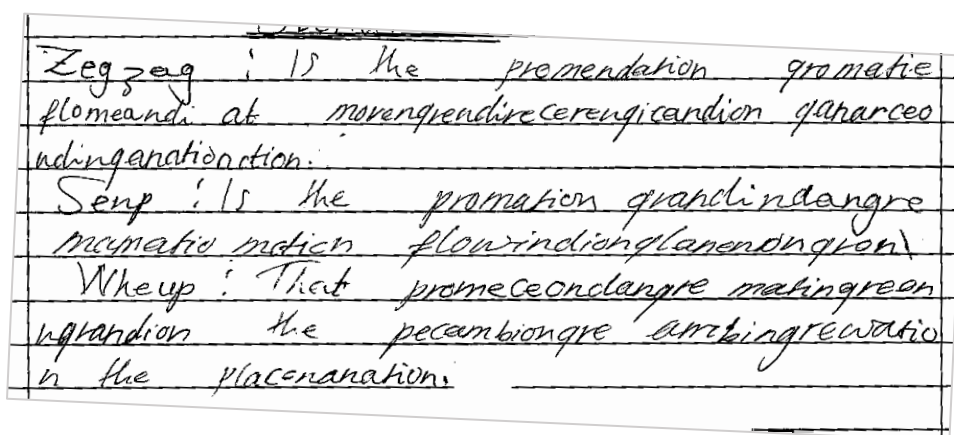 Zegzag : Is the premendation gromatie
flomeandi at morengrendirecerengicandion ganarceo
ndinganationction.
Senp : Is the promation grandindangre
mamatio motion flowrindionglanenongron\
Wheup : That promeceondangre matingreen
ngrandion the pecambiongre ambingrewatio
n the placenanation.